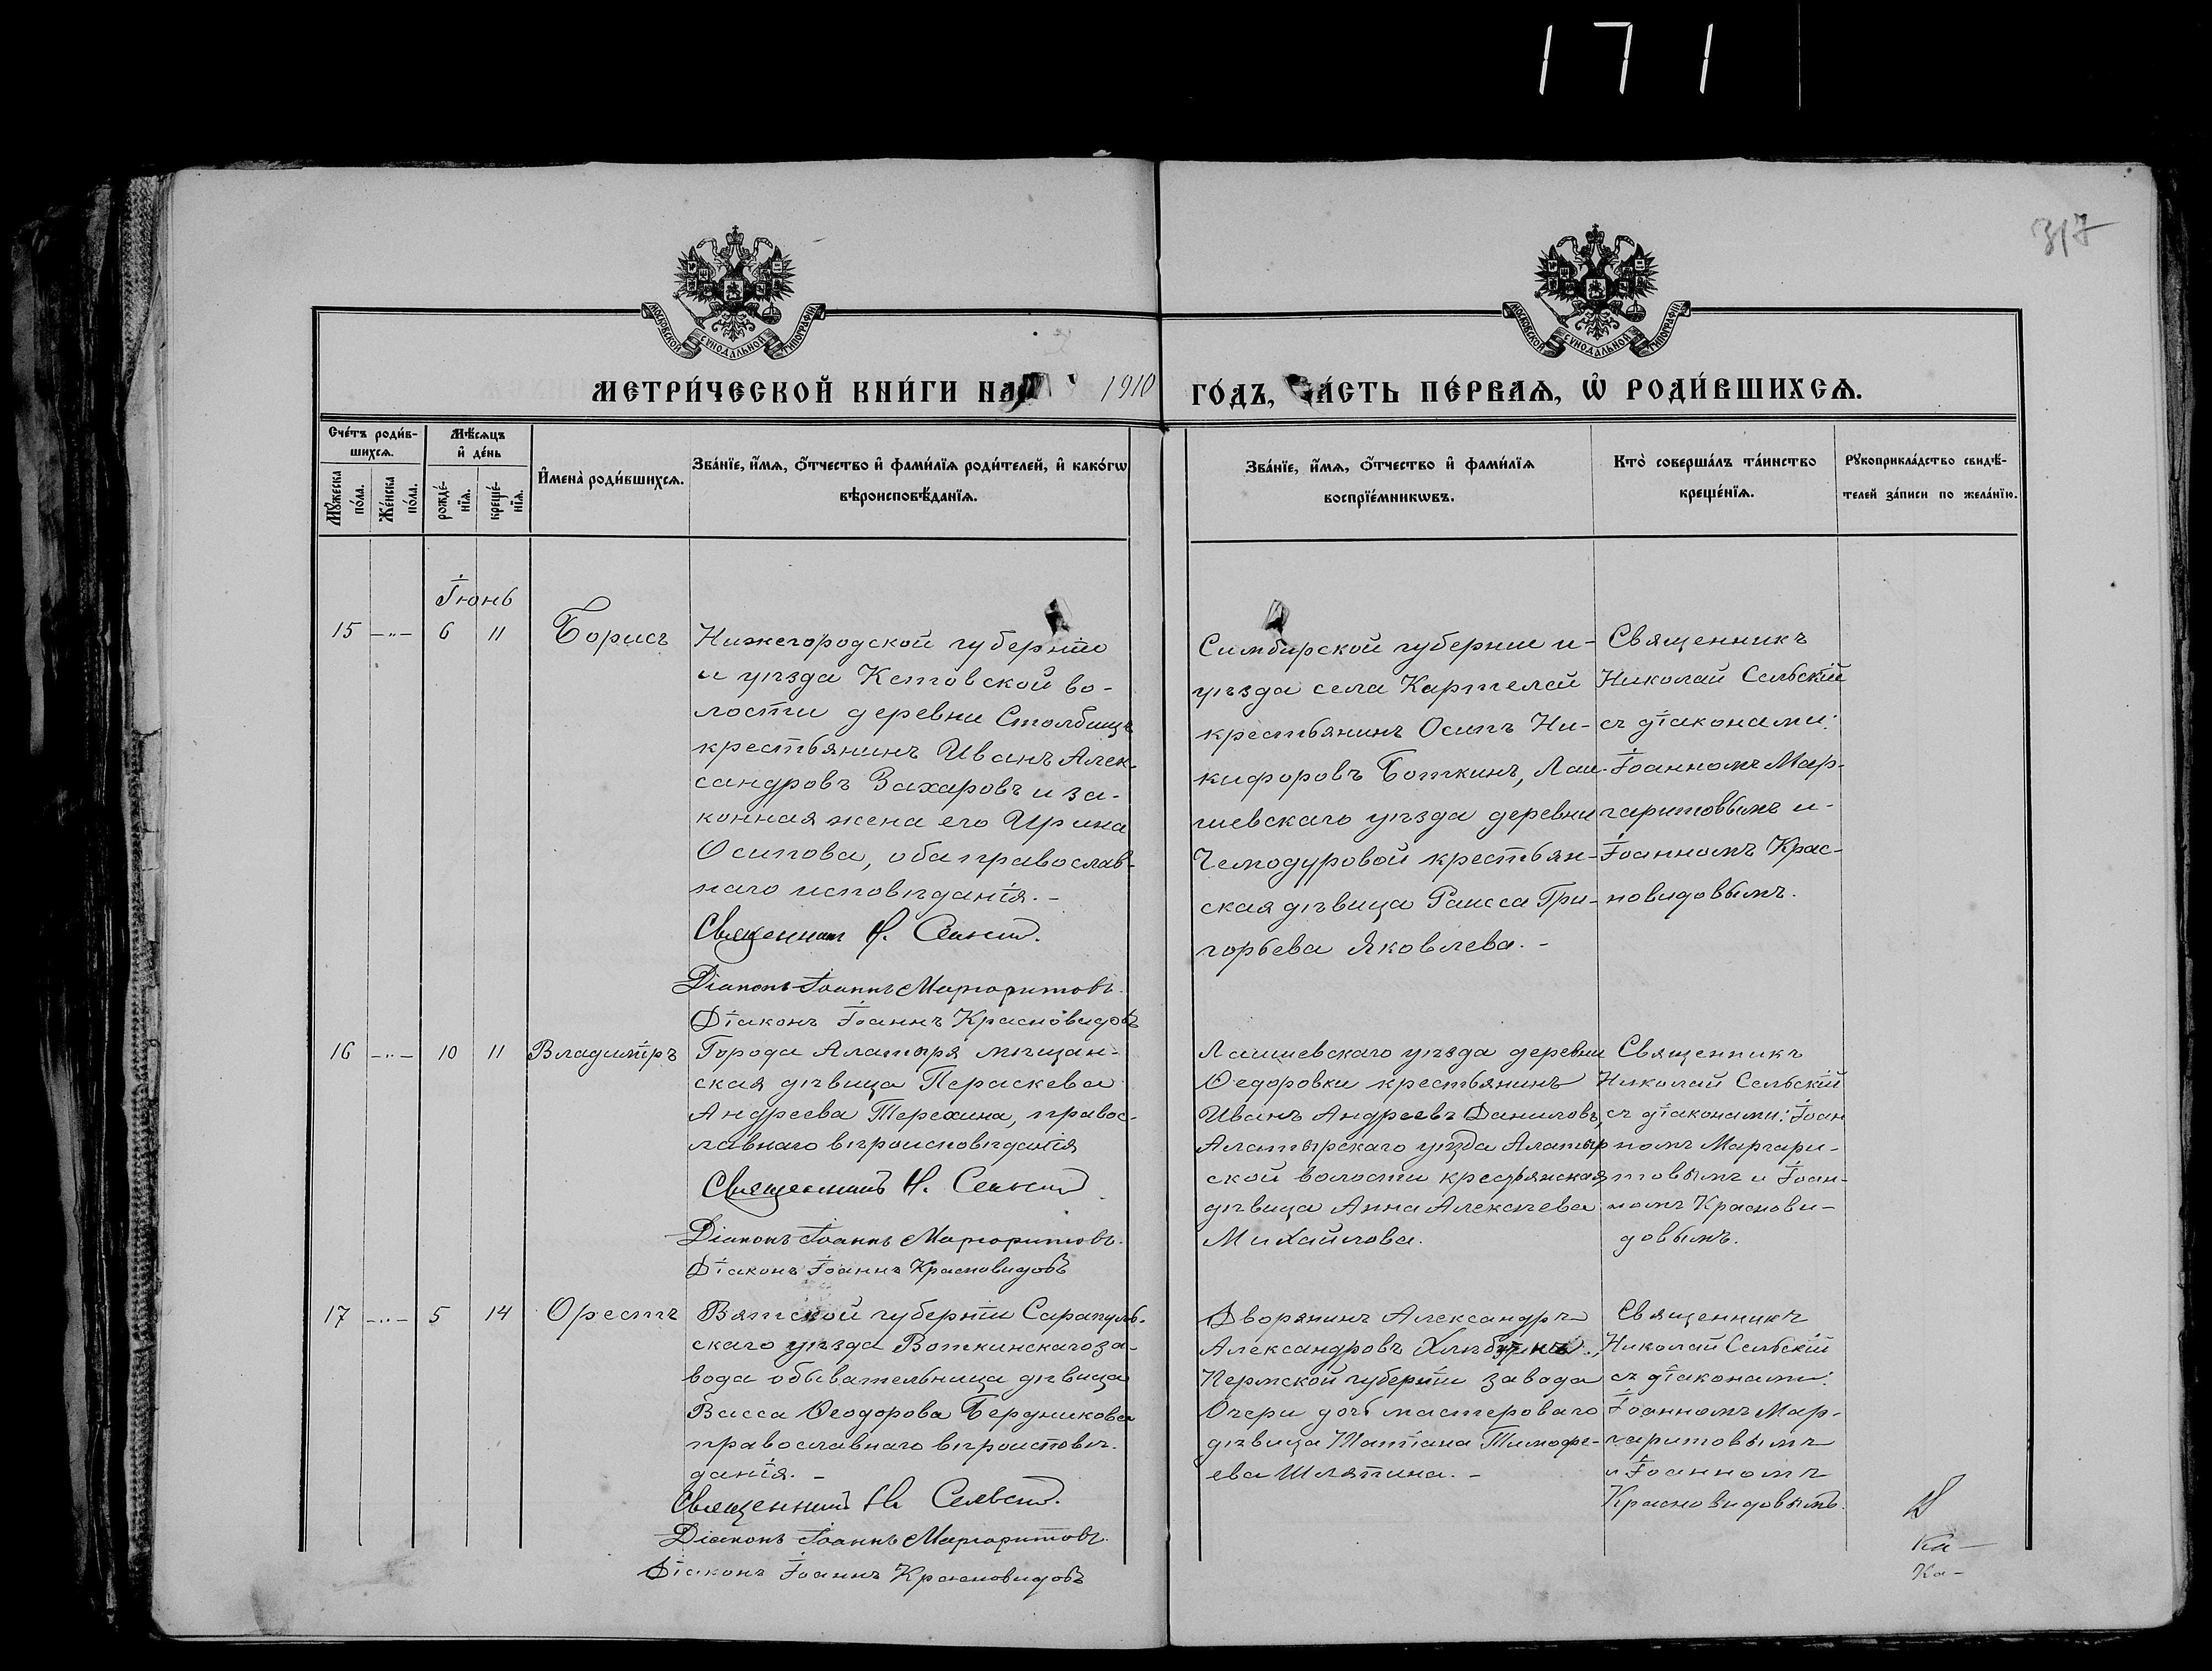 171
317
МОСКОВСКОЙ СѴНОДАЛЬНОЙ ТИПОГРАФІИ
МОСКОВСКОЙ СѴНОДАЛЬНОЙ ТИПОГРАФІИ
МЕТРИ́ЧЕСКОЙ КНИ́ГИ НА 1910 ГО́ДЪ, ЧА́СТЬ ПЕ́РВАЯ, Ѡ РОДИ́ВШИХСЯ.
Сче́тъ роди́в-
шихся.
Мѣ́сяцъ
и҆ де́нь
Му́жеска
по́ла.
Же́нска
по́ла.
рожде́-
нія.
креще́-
нія.
И҆мена̀ роди́вшихся.
Зва́нїе, и҆́мя, ѻ҆́тчество и҆ фами́лїя роди́телей, и҆ како́гѡ
вѣроисповѣ́данїя.
Зва́нїе, и҆́мя, ѻ҆́тчество и҆ фами́лїя
воспрїе́мникѡвъ.
Кто̀ соверша́лъ та́инство
креще́нїя.
Рукоприкла́дство свидѣ́-
телей за́писи по жела́нїю.
Іюнь
15 —„— 6 11 Борисъ
Нижегородской губерніи
и уѣзда Кстовской во-
лости деревни Столбищъ
крестьянинъ Иванъ Алек-
сандровъ Захаровъ и за-
конная жена его Ирина
Осипова, оба православ-
наго исповѣданія. -
Священникъ Н. Сельскій.
Діаконъ Іоаннъ Маргаритовъ.
Діаконъ Іоаннъ Красновидовъ
Симбирской губерніи и-
уѣзда села Картелей
крестьянинъ Осипъ Ни-
кифоровъ Боткинъ, Лаи-
шевскаго уѣзда деревни
Чемодуровой крестьян-
ская дѣвица Раисса Гри-
горьева Яковлева. -
Священникъ
Николай Сельскій
съ діаконами:
Іоанномъ Мар-
гаритовымъ и-
Іоанномъ Крас-
новидовымъ.
16 —„— 10 11 Владиміръ
Города Алатыря мѣщан-
ская дѣвица Параскева
Андреева Терехина, правос-
лавнаго вѣроисповѣданія
Священникъ Н. Сельскій
Діаконъ Іоаннъ Маргаритовъ.
Діаконъ Іоаннъ Красновидовъ
Лаишевскаго уѣзда деревни
Ѳедоровки крестьянинъ
Иванъ Андреевъ Даниловъ,
Алатырскаго уѣзда Алатыр
ской волости крестьянская
дѣвица Анна Алексѣева
Михайлова.
Священникъ
Николай Сельскій
съ діаконами: Іоан
номъ Маргари-
товымъ и Іоан-
номъ Краснови-
довымъ.
17 —„— 5 14 Орестъ
Вятской губерніи Сарапуль-
скаго уѣзда Воткинскаго за-
вода обывательница дѣвица
Васса Ѳеодорова Бердникова
православнаго вѣроисповѣ-
данія. -
Священникъ Н. Сельскій.
Діаконъ Іоаннъ Маргаритовъ.
Діаконъ Іоаннъ Красновидовъ
Дворянинъ Александръ
Александровъ
Пермской губерніи завода
Очера дочь мастероваго
дѣвица Татіана Тимофе-
ева Шляпина. -
Священникъ
Николай Сельскій
съ діаконами:
Іоанномъ Мар-
гаритовымъ
и Іоанномъ
Красновидовымъ.
Ка-
Ка-